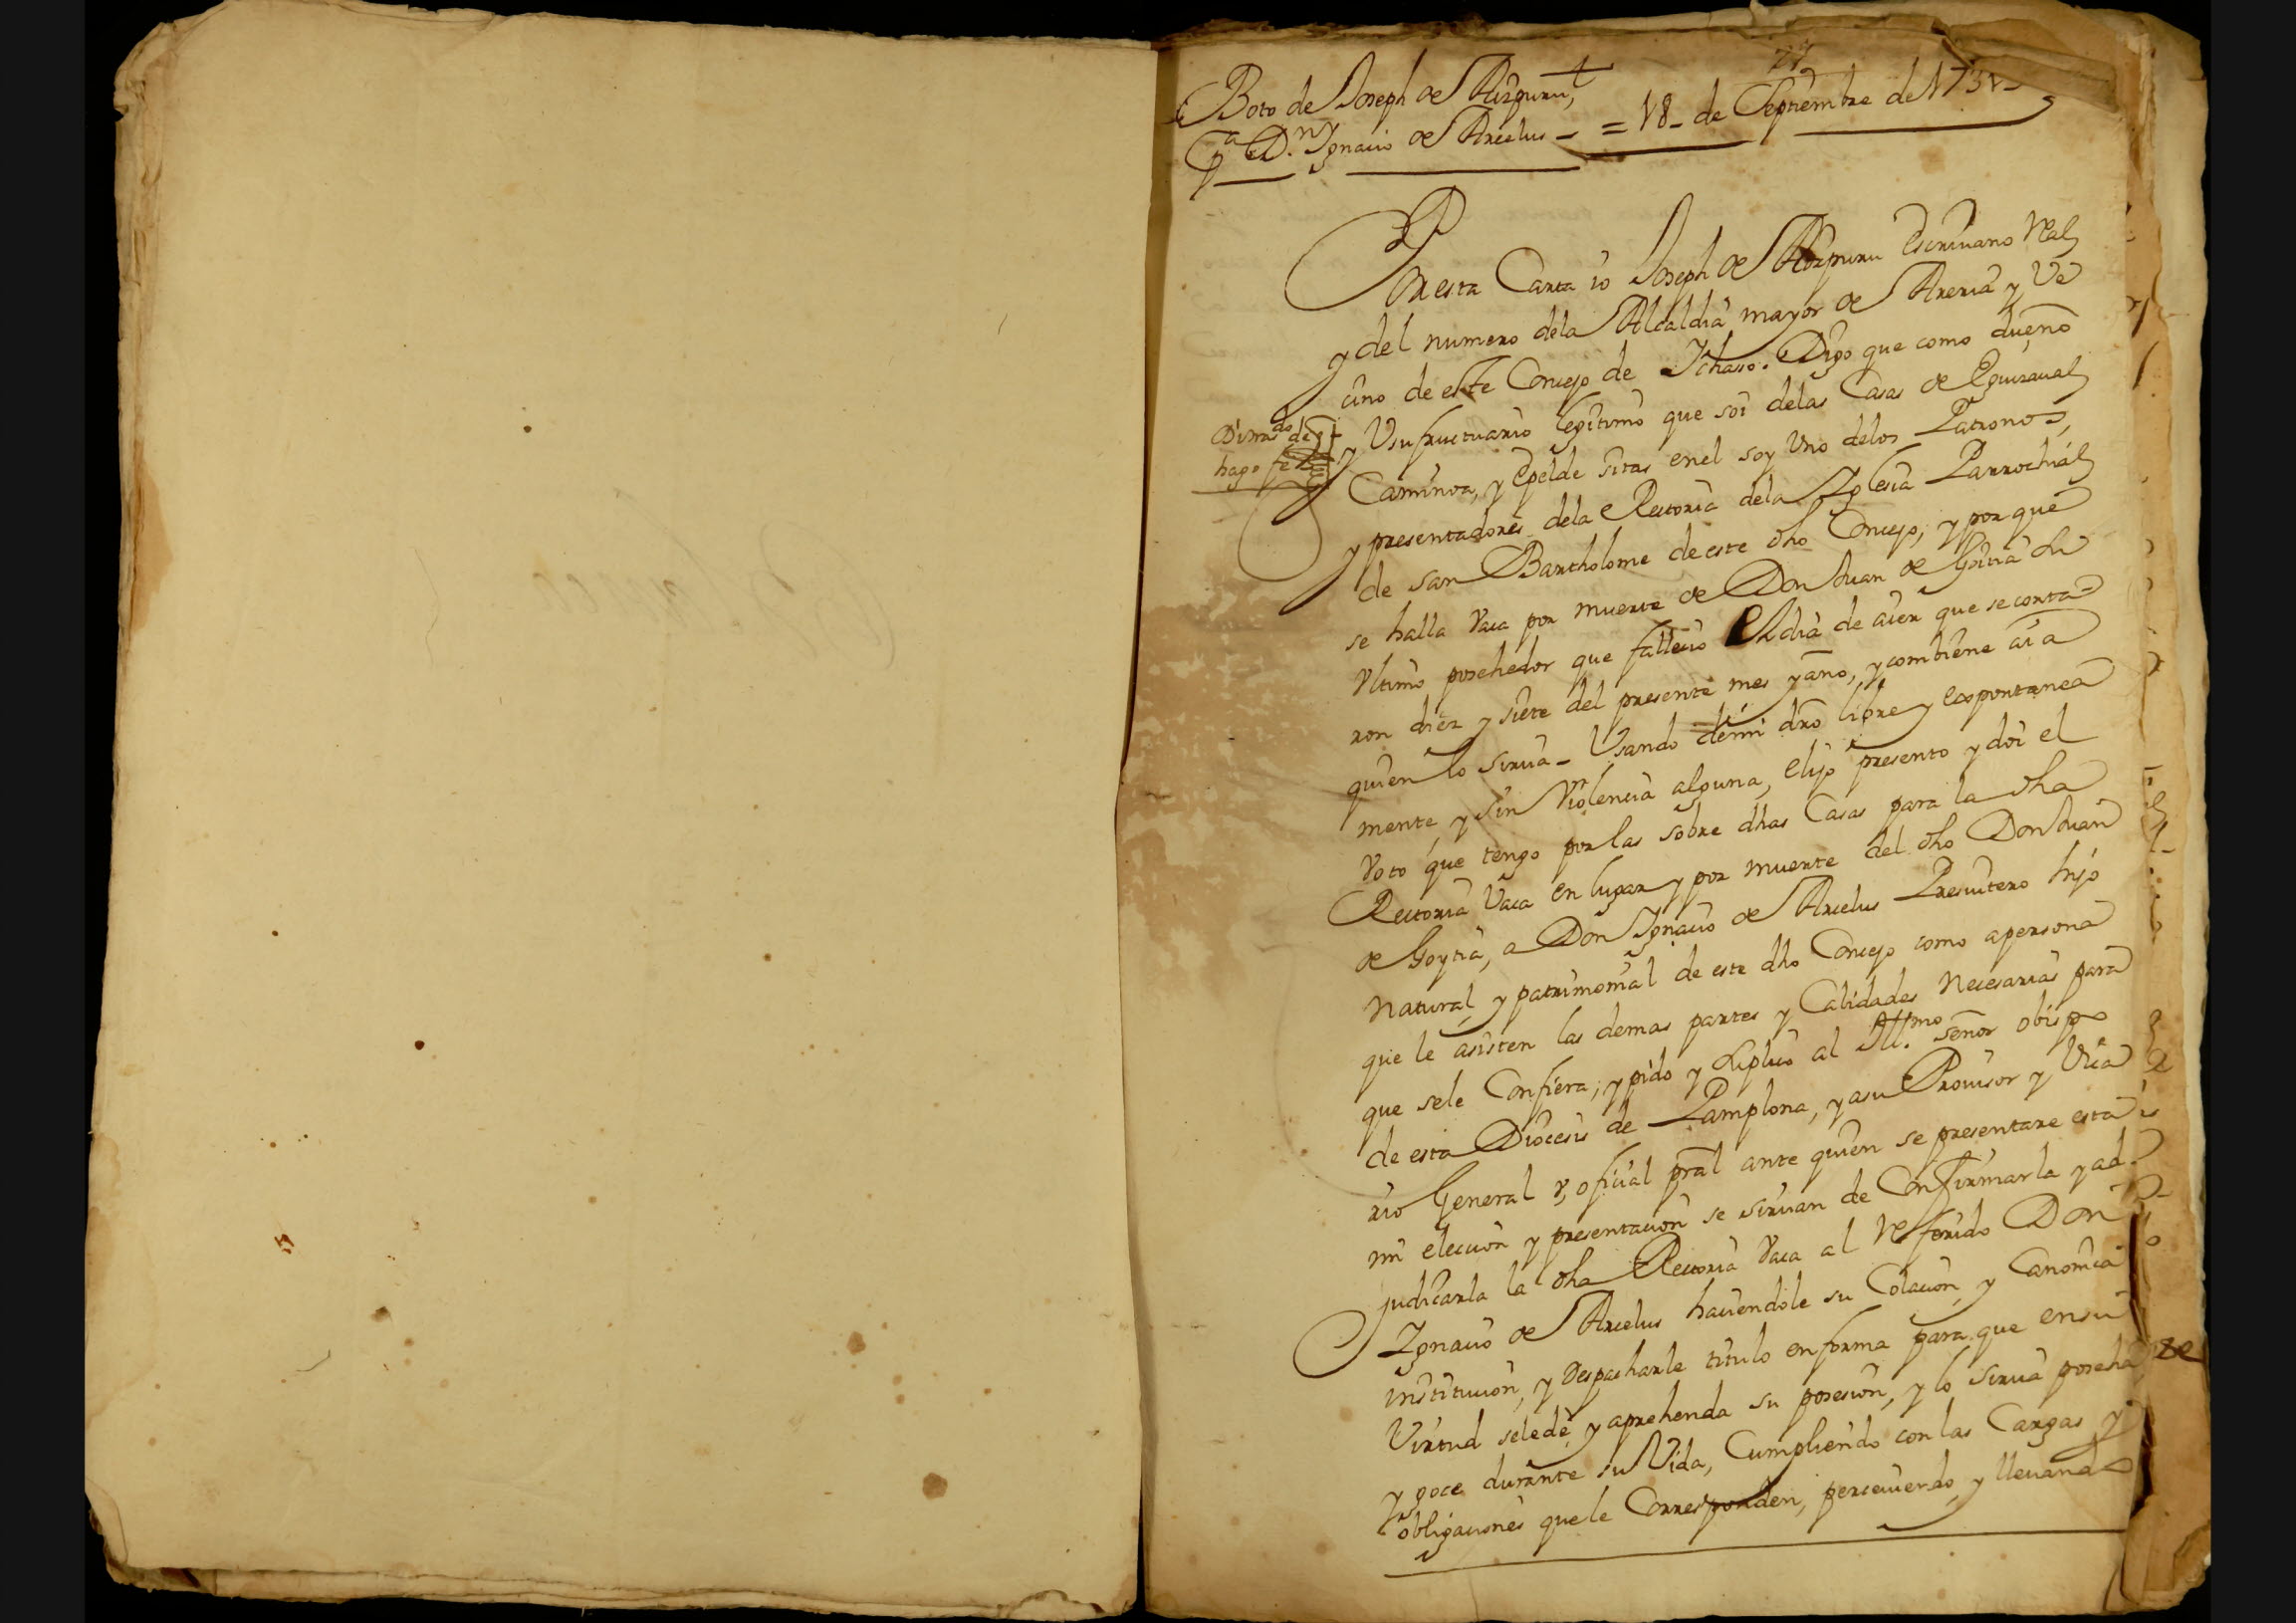 Boto de Joseph de Aizpuru,
p.a D.n Ignacio de Arcelus = 18 de Septiembre de 1731
Por esta Carta io Joseph de Aizpuru Escriuano Real
y del numero dela Alcaldia mayor de Areria y Ve
cino de este Concejo de Ichaso. Digo que como dueño
y Vsufructuario legitimo que soi delas Casas de Eguizaual
Caminoa, y Epelde sitas enel soy Vno delos Patronos,
Dimas do de
hago fe
y presentadores dela Rectoria dela Iglesia Parrochial
de san Bartholome de este dho Concejo, y por que
se halla Vaca por muerte de Don Juan de Goitia su
Vltimo posehedor que fallecio el dia de aier que se conta=
ron diez y siete del presente mes y año, y combiene aia
quien lo sirua - Vsando de mi dro libre y espontanea
mente, y sin Violencia alguna, elijo presento y doi el
Voto que tengo por las sobre dhas Casas para la dha
Rectoria Vaca en lugar y por muerte del dho Don Juan
de Goytia, a Don Ignacio de Arcelus Presuitero hijo
natural, y patrimonial de este dho Concejo como apersona
que le asisten las demas partes y Calidades necesarias para
que sele Confiera; y pido y suplico al Ill.mo señor obispo
de esta Diocesis de Pamplona, y asu Prouisor y Vica
rio General y, oficial pral ante quien se presentare esta
mi eleccion y presentacion se siruan de Confirmarla y ad
judicarla la dha Rectoria Vaca al Referido Don
Ignacio de Arcelus haciendole su Colacion, y Canonica
institucion, y Despacharle titulo en forma para que en su
Virtud sele de y aprehenda su posesion, y lo sirua poseha
y goce durante su Vida, Cumpliendo con las Cargas y
obligaciones quele Corresponden, perceuiendo, y lleuando